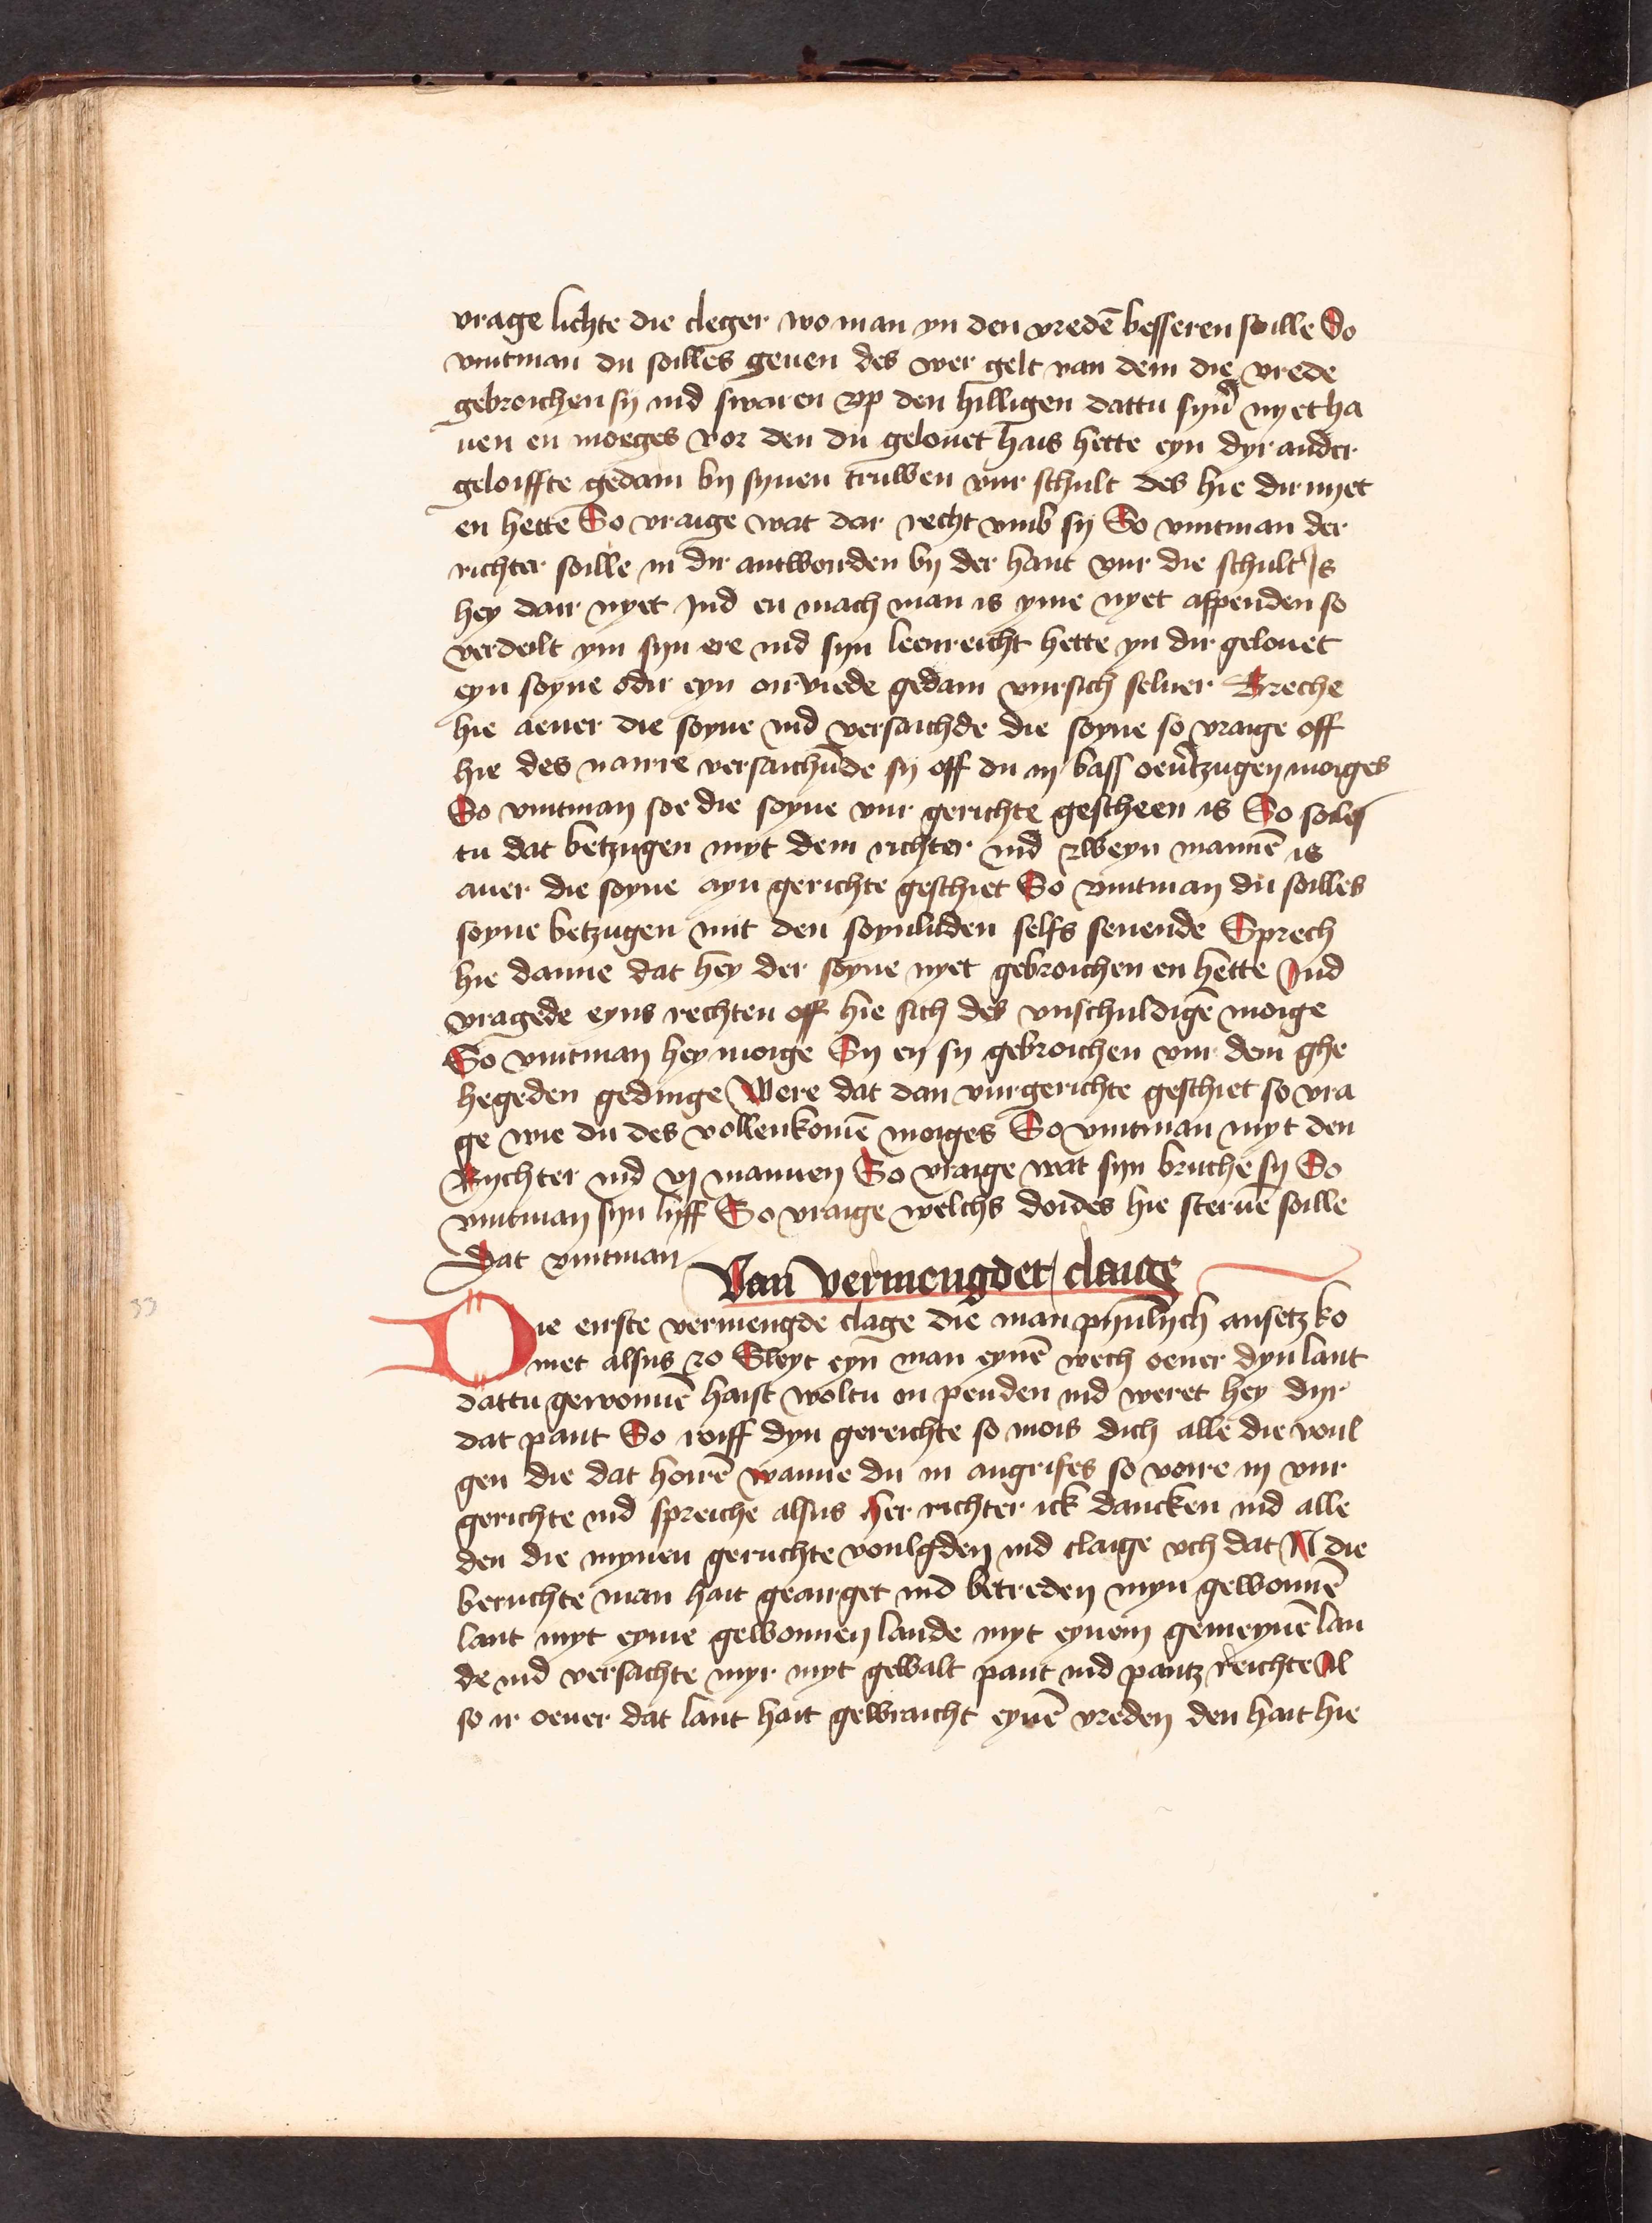 vrage lichte die cleger wo man yn den vredē besseren soille So
vintman du soilles geuen des wer gelt van dem die vrede
gebroichen sy ind swaren vp den hilligen dattu syn̄ nyet ha
uen en moeges vor den du gelouet hais hette eyn dyr ander
geloiffte gedain by synen truwen vur schult des hie dir nyet
en hette So vraige wat dar recht vmb sy So vintman der
richter soille in dir antworden by der hant vur die schult Is
hey dair nyet Ind en mach man is yme nyet affpenden so
verdeilt ym syn ere ind syn leenreicht hette yn dir gelouet
eyn soyne odir eyn oirviede gedain vur sich seluer Breche
hie aeuer die soyne ind versaichde die soyne so vraige off
hie des naure versaichende sy off du in bass oeūtzugen moiges
So vintman soe die soyne vur gerichte gescheen is So soiles
tu dat betzugen myt dem richter ind zweyn mannē is
auer die soyne ayn gerichte geschiet So vintman du soilles
soyne betzugen mit den soynluden selfs seuende Sprech
hie danne dat hey der soyne nyet gebroichen en hette Ind
vragede eyns rechten off hie sich des vnschuldigē moige
So vintman hey moige Sy en sy gebroichen vur dem ghe
hegeden gedinge Were dat dan vur gerichte geschiet so vra
ge wie du des vollenkomē moiges So vintman myt den
Rychter ind vj mannen So vraige wat syn bruche sy So
vintman syn lyff So vraige welchs doides hie steruē soille
Dat vintman
Van vermengder claige
Die eirste vermengde clage die man pynlych ansetz ko
met alsus zo Sleyt eyn man eynē wech oeuer dyn lant
dattu gewonnē haist woltu in penden ind weret hey dyr
dat pant So roiff dyn gereichte so mois dich alle die voul
gen die dat hoirē wanne du in angrifes so voire in vur
gerichte ind spreiche alsus her richter ick dancken ind alle
den die mynen geruchte voulgden ind claige vch dat N die
beruchte man hait gearget ind betreden myn gewonnē
lant myt eyme gewonnen lande myt eynem gemeynē lan
de ind versachte myr myt gewalt pant ind pantz reichte Al
so ir oeuer dat lant hait gewraicht eynē vreden den hait hie
33